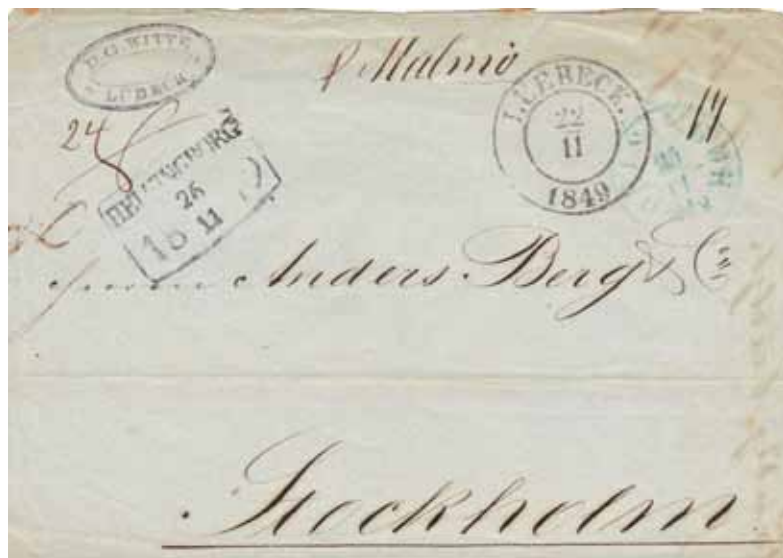 D.G. WITTE.
LÜBECK.
p Malmö
LUEBECK.
22
11
1849
17
24
HELSINGBORG
26
11
18
Herren Anders Berg & Co
Stockholm